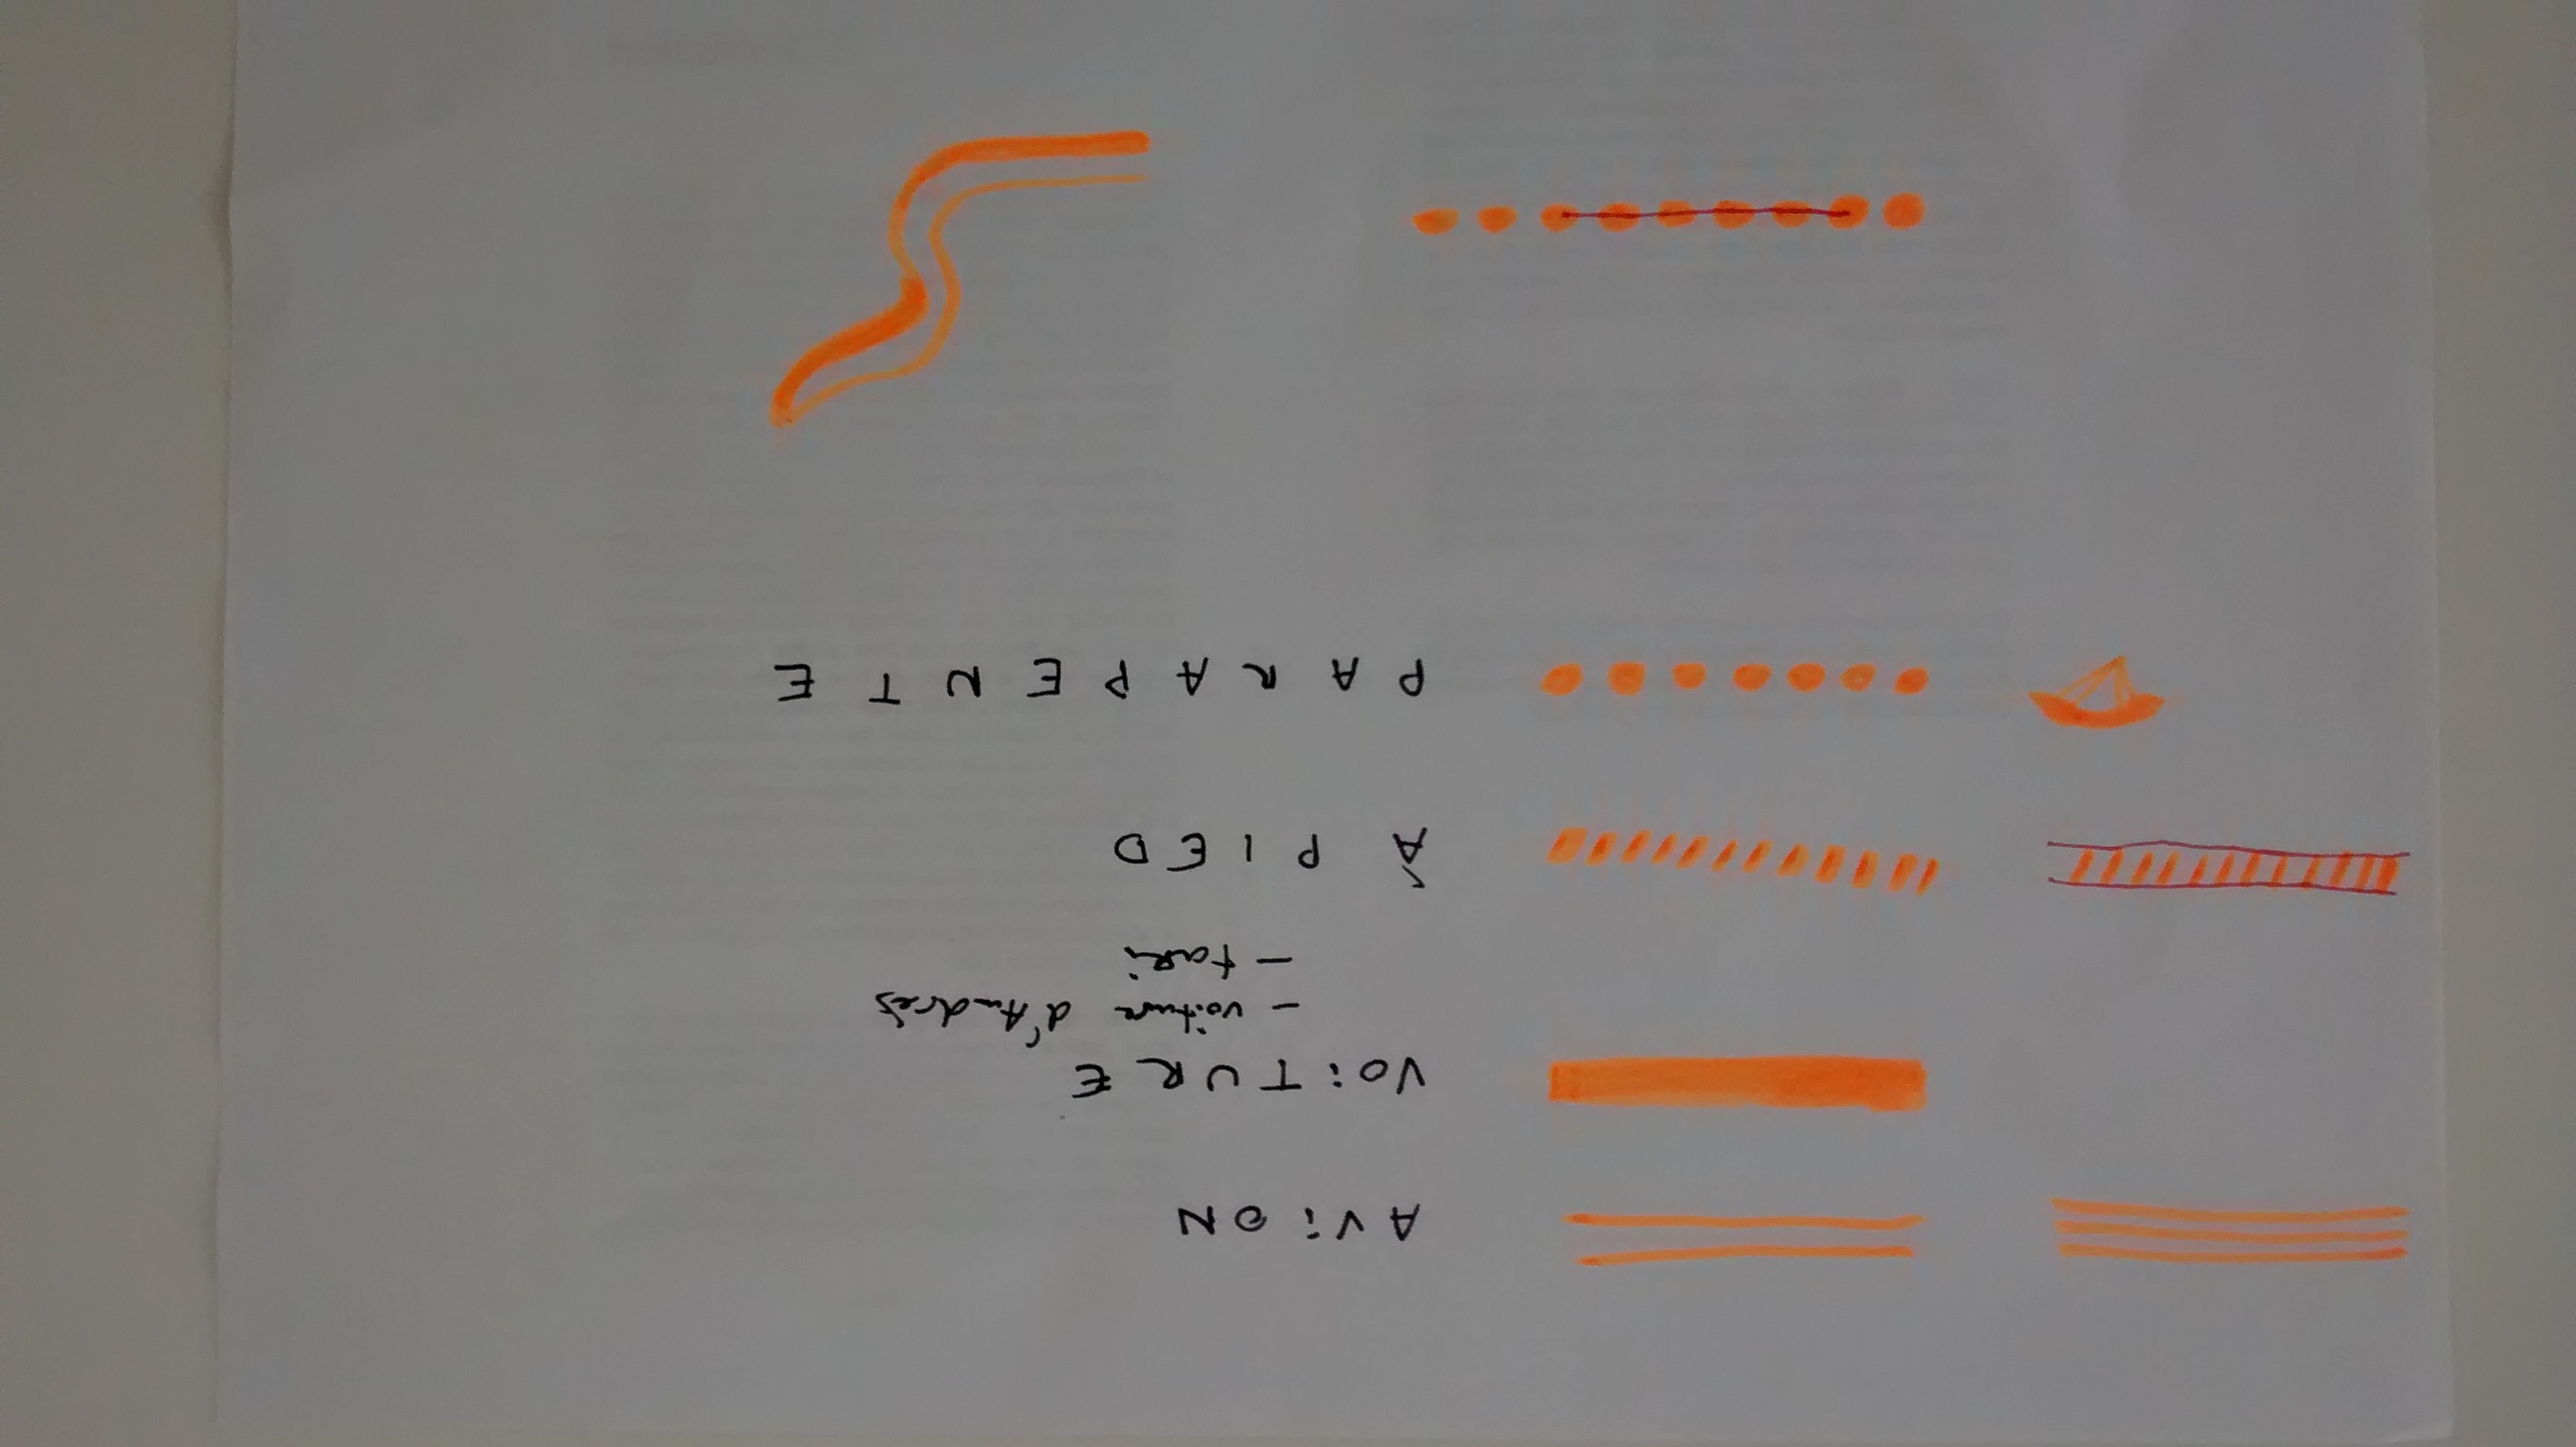 AViON
VOiTURE
- voiture d'Andrés
- taxi
À PIED
PARAPENTE